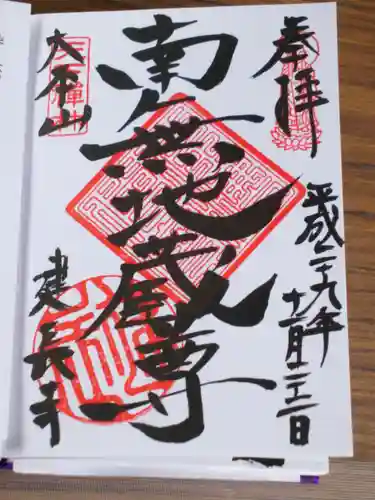 奉拝
平成二十九年
十一月
南無地蔵尊
大本山
建長寺